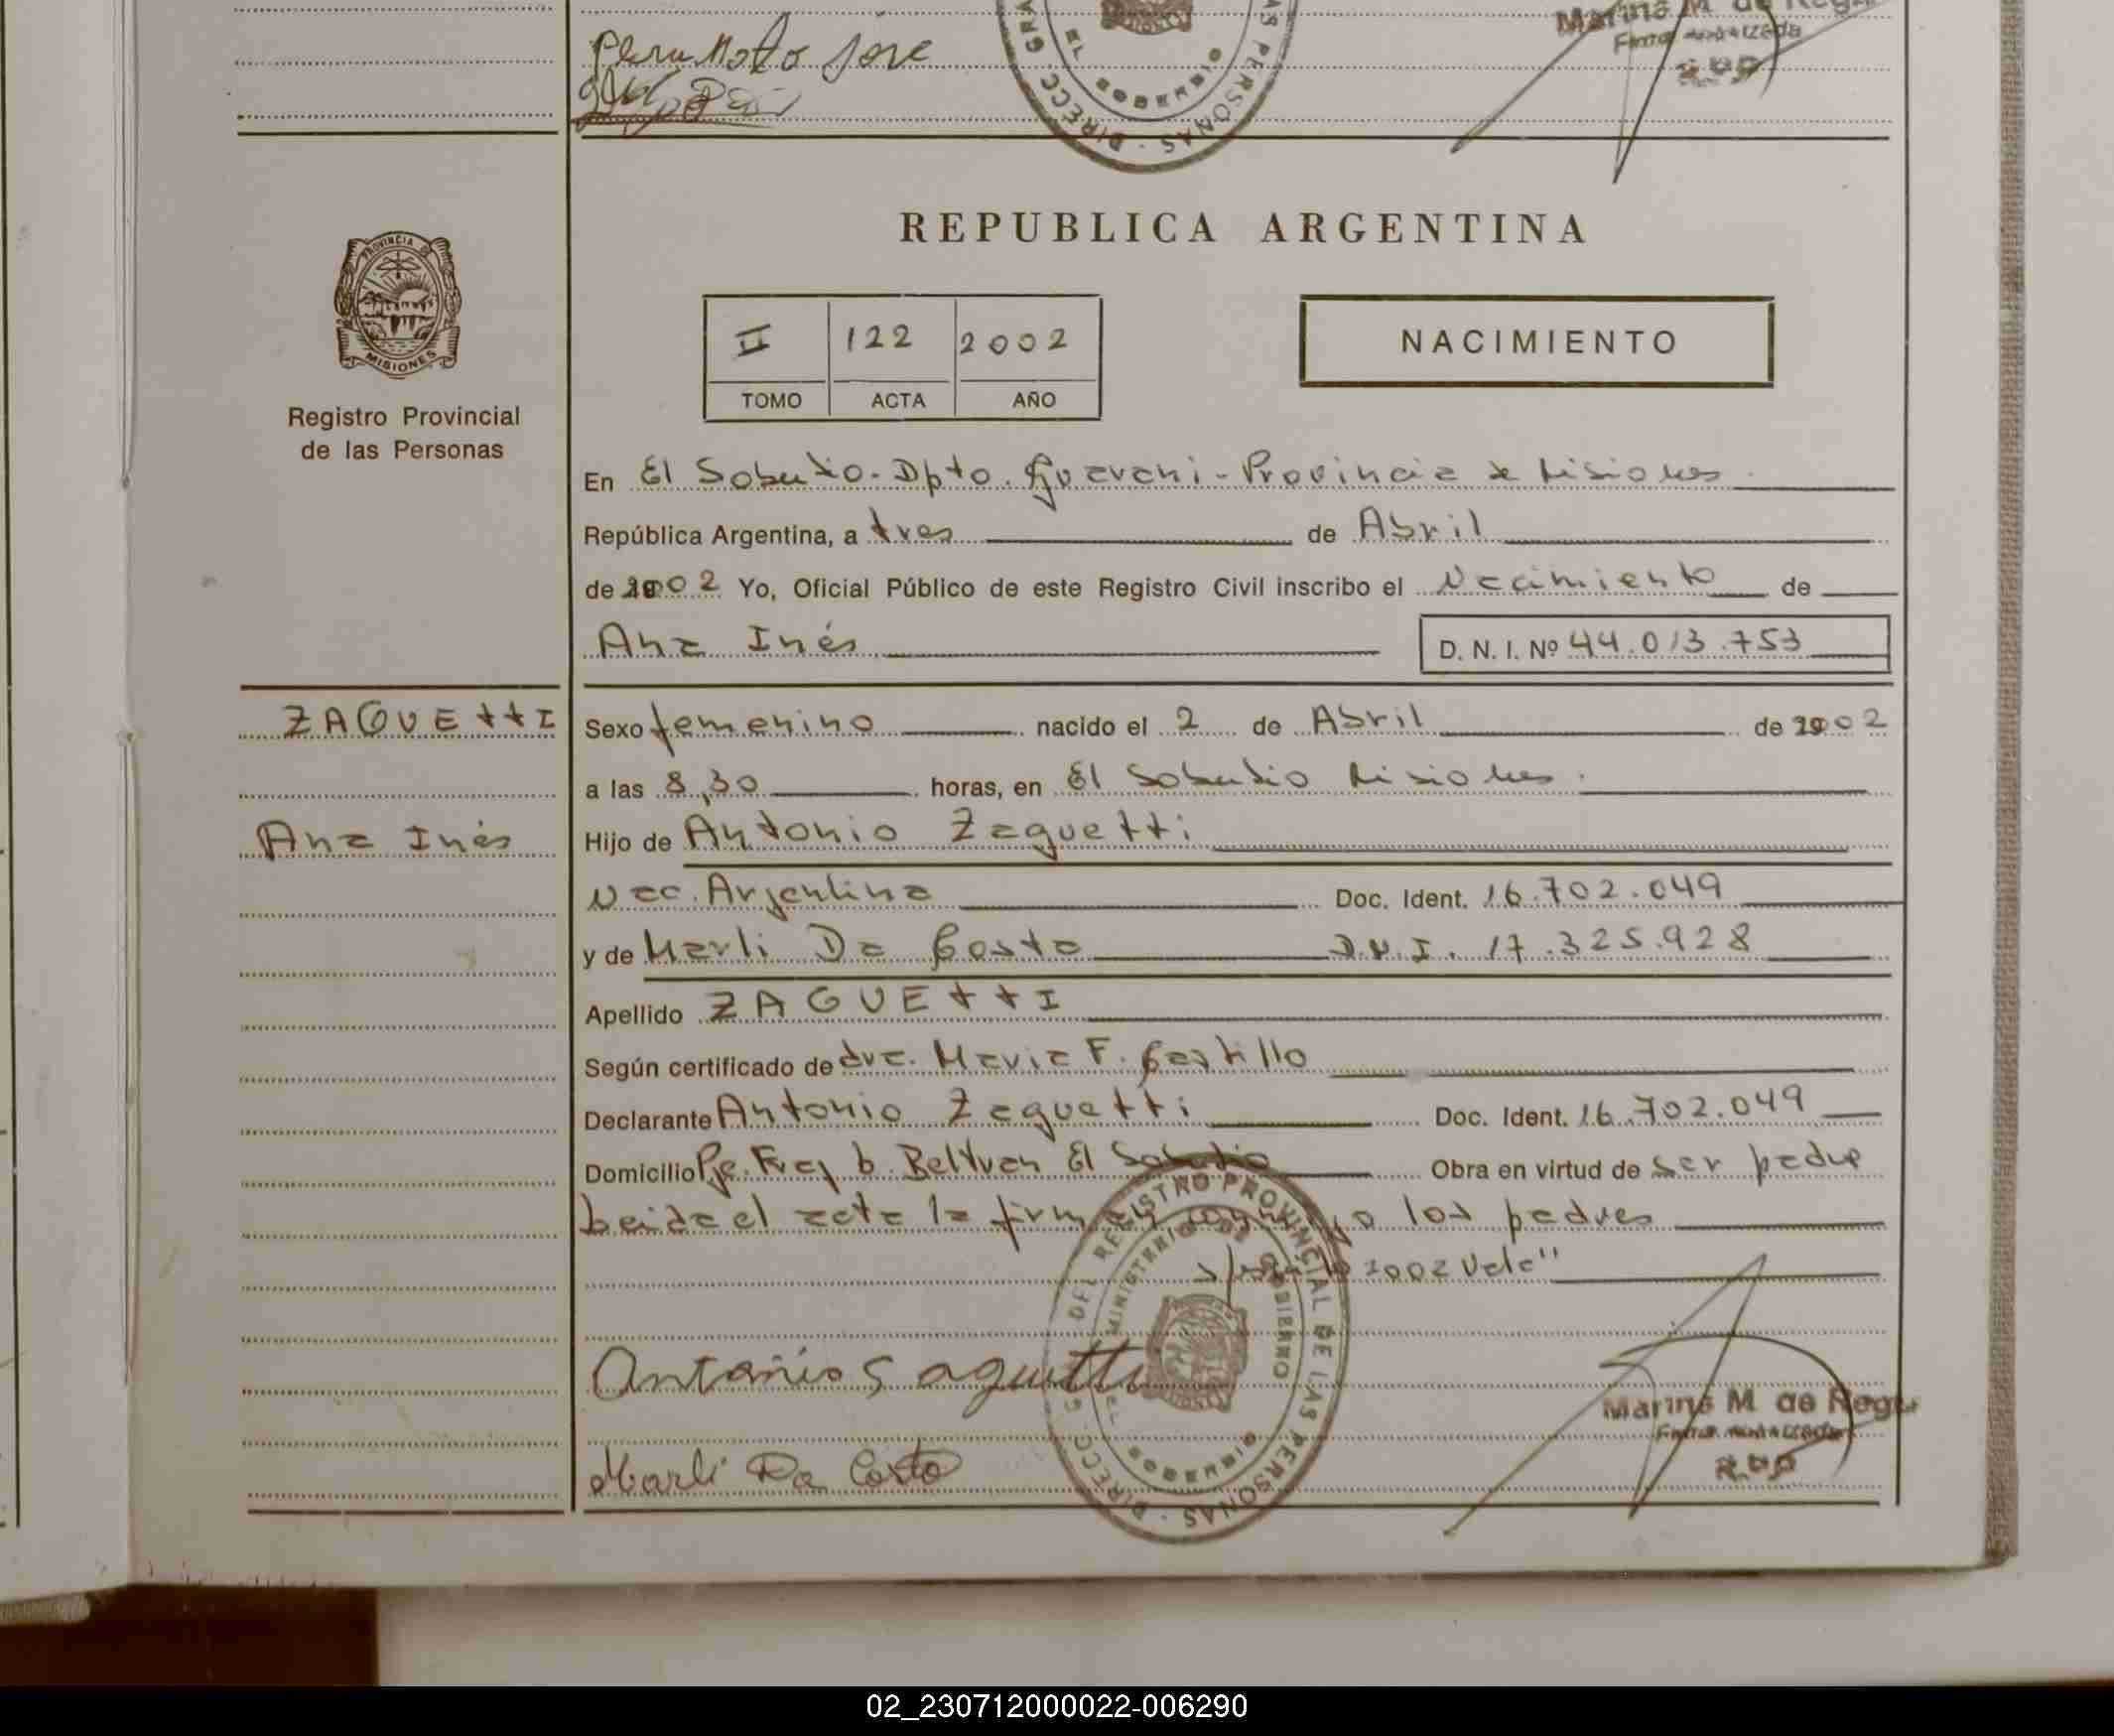 Perumoto José
Marina M. de Regu
Firma Autorizada
EL SOBERBIO
DIRECC. GRA
AS PERSONAS
REPUBLICA ARGENTINA
PROVINCIA DE
MISIONES
Registro Provincial
de las Personas
II 122 2002
TOMO ACTA AÑO
NACIMIENTO
En El Soberbio - Dpto. Guarani - Provincia de Misiones.
República Argentina, a tres de Abril
de 2002 Yo, Oficial Público de este Registro Civil inscribo el Nacimiento de
Ana Inés D. N. I. Nº 44.013.753
ZAGUETTI
Ana Inés
Sexo femenino nacido el 2 de Abril de 2002
a las 8,30 horas, en El Soberbio Misiones.
Hijo de Antonio Zaguetti
Nac. Argentina Doc. Ident. 16.702.049
y de Marli Da Costa D.N.I. 17.325.928
Apellido ZAGUETTI
Según certificado de dra. Maria F. Castillo
Declarante Antonio Zaguetti Doc. Ident. 16.702.049
Domicilio Pje. Fray b. Beltran El Soberbio Obra en virtud de ser padre
Leida el acta la firman conmigo los padres
2002 Vale"
Antonio Saguetti
Marli Da Costa
DIRECC. G DEL REGISTRO PROVINCIAL DE LAS PERSONAS
MINISTERIO DE GOBIERNO
EL SOBERBIO
Marina M. de Regu
Firma Autorizada
02_230712000022-006290